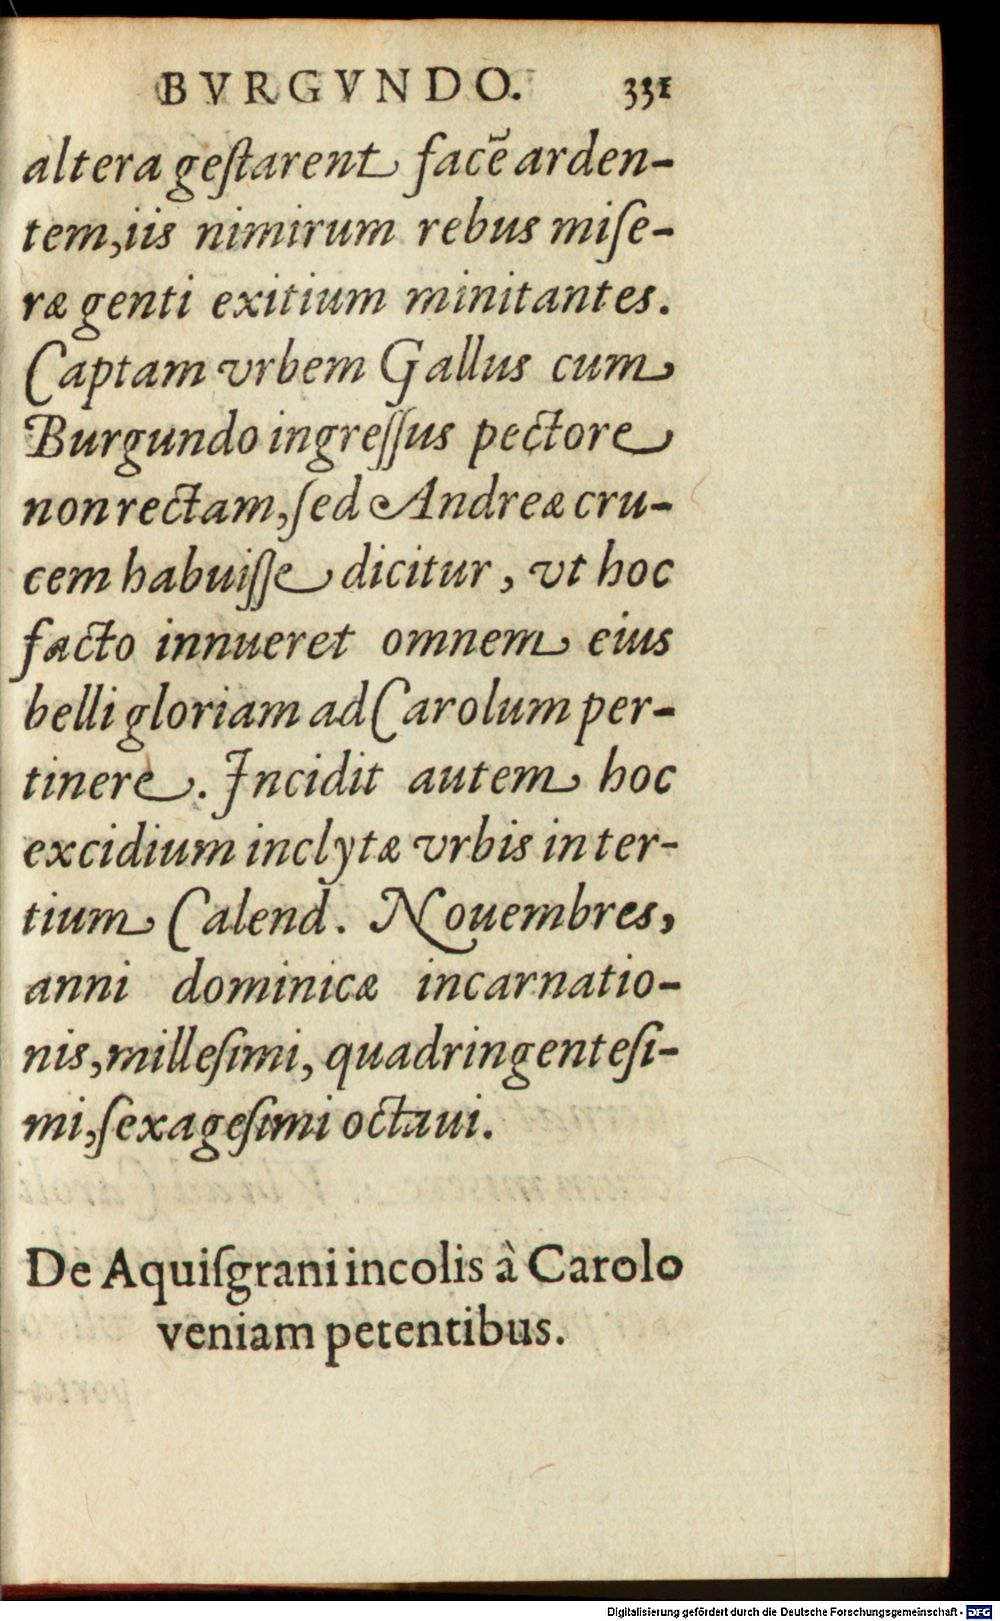 BVRGVNDO. 331
altera geſtarent facē arden-
tem, iis nimirum rebus miſe-
ræ genti exitium minitantes.
Captam vrbem Gallus cum
Burgundo ingreſſus pectore
non rectam, ſed Andreæ cru-
cem habuiſſe dicitur, vt hoc
facto innueret omnem eius
belli gloriam ad Carolum per-
tinere. Incidit autem hoc
excidium inclytæ vrbis in ter-
tium Calend. Nouembres,
anni dominicæ incarnatio-
nis, milleſimi, quadringenteſi-
mi, ſexageſimi octaui.
De Aquiſgrani incolis à Carolo
veniam petentibus.
Digitalisierung gefördert durch die Deutsche Forschungsgemeinschaft - DFG